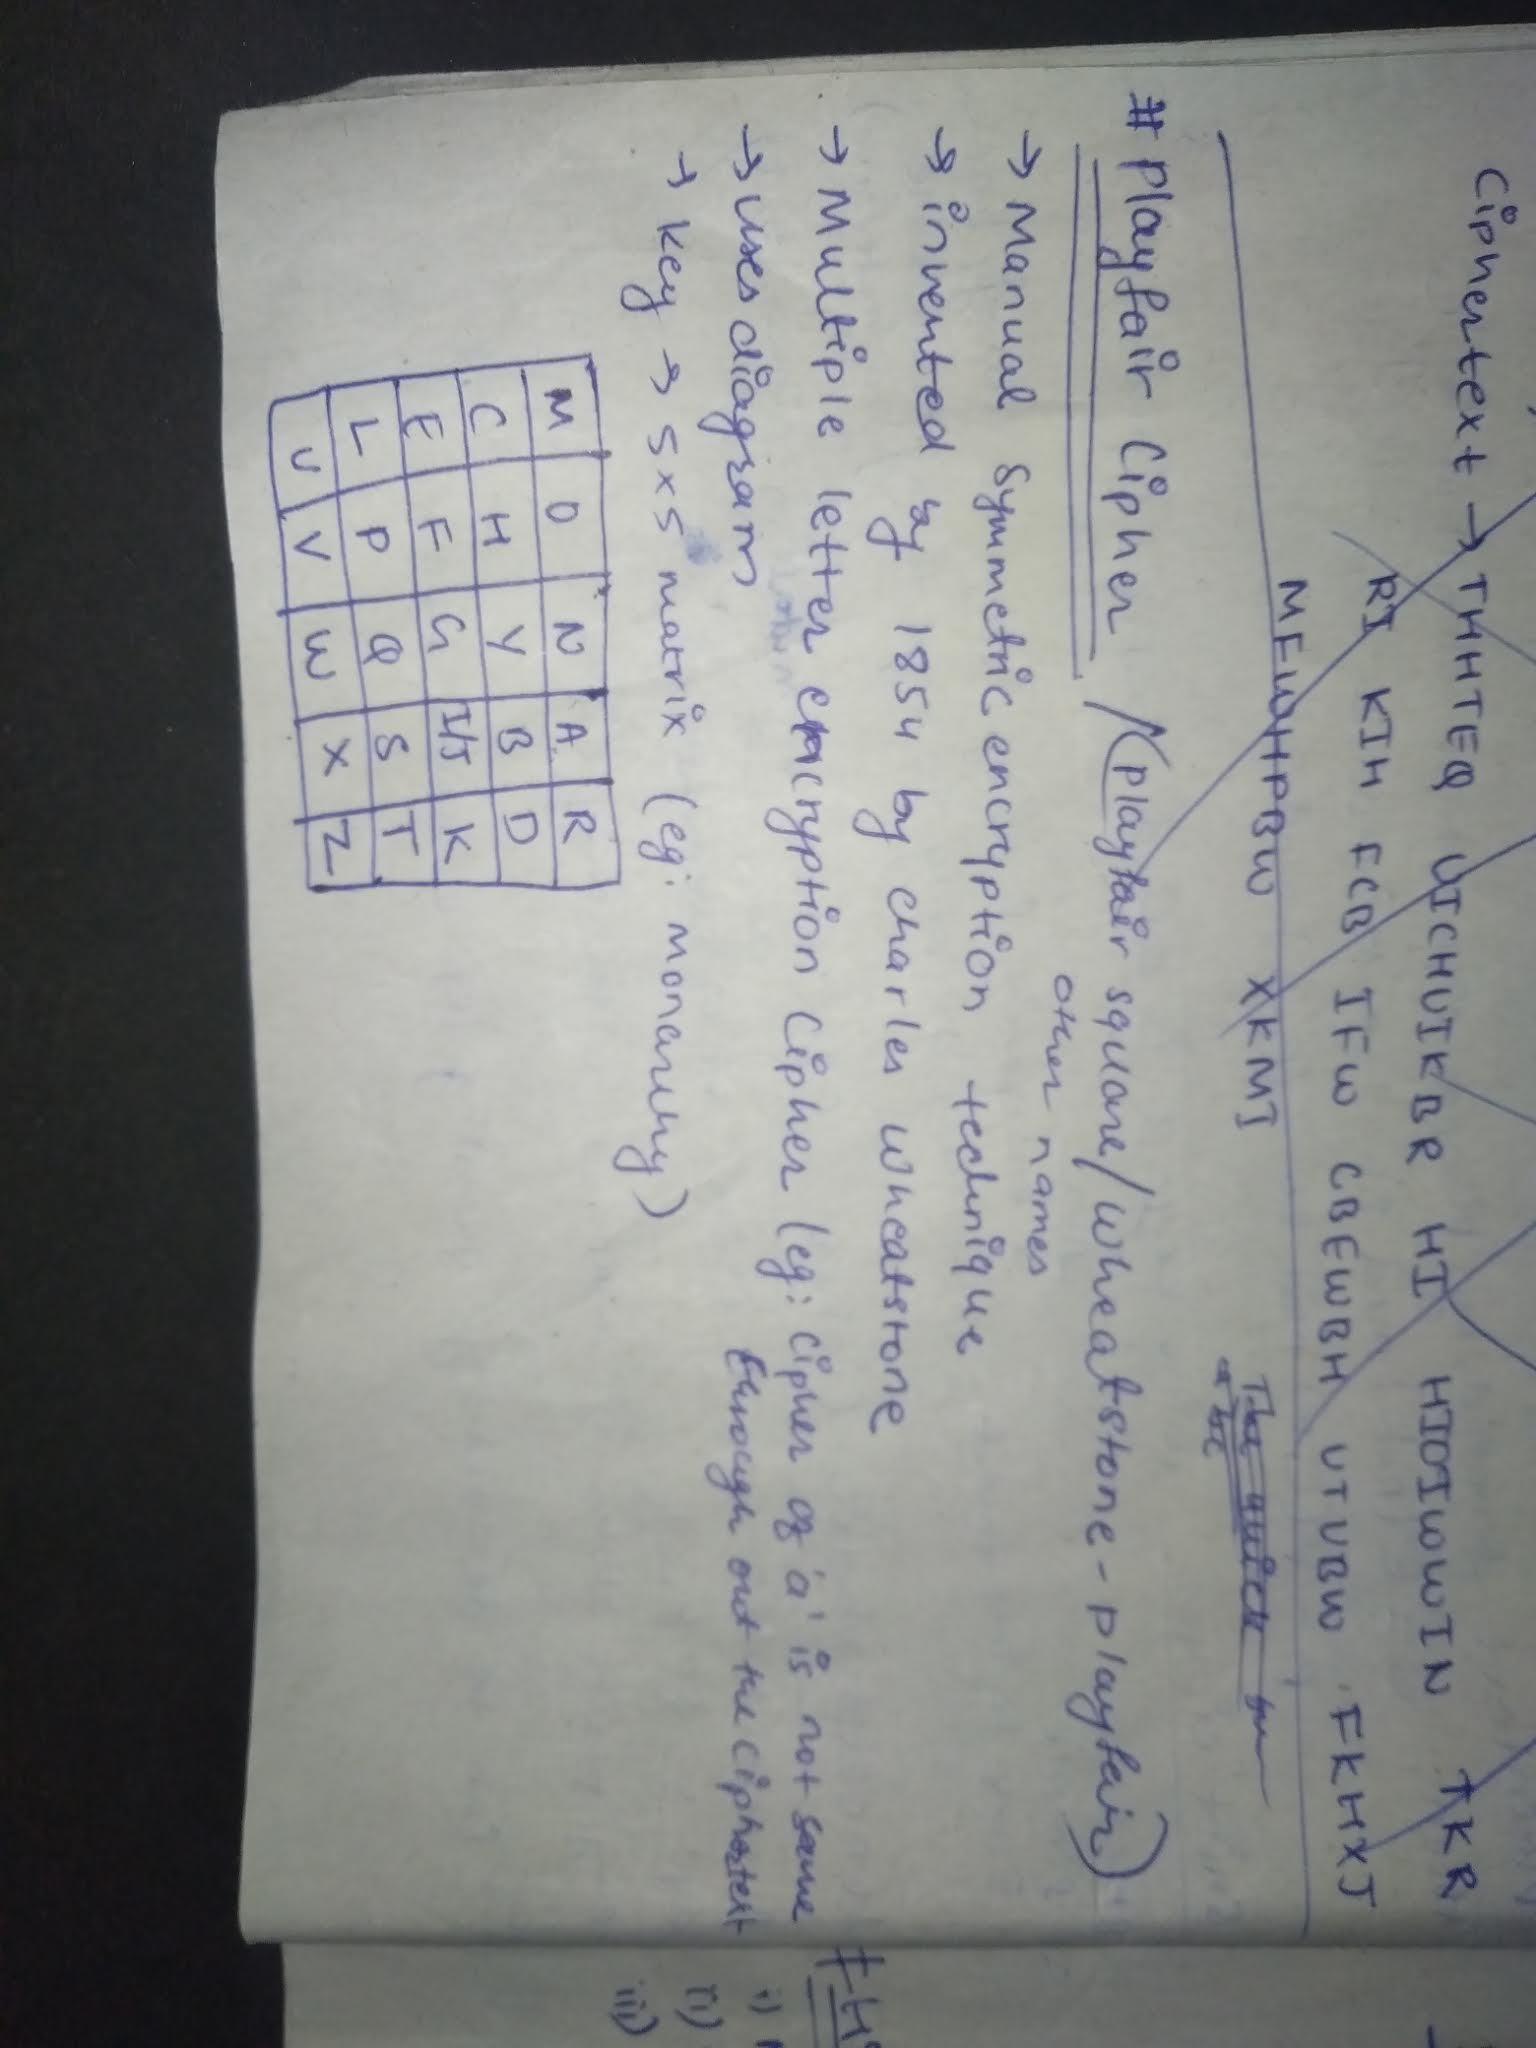 Ciphertext → THHTEQ UICHUIKBR HI HIOIWWIN TKR
RI KIH FCB IFW CBEWBH UTUBW FKHXJ
MFWHPBW XKMI
The quick
# Playfair Cipher /(playfair square/wheatstone-playfair)
other names
→ Manual Symmetric encryption technique
→ invented by 1854 by charles wheatstone
→ Multiple letter encryption Cipher (eg: Cipher of 'a' is not same
through out the ciphertext
→ uses diagram
→ key → 5x5 matrix (eg: Monarchy)
M O N A R
C H Y B D
E F G I/J K
L P Q S T
U V W X Z
# Hi
i)
ii)
iii)